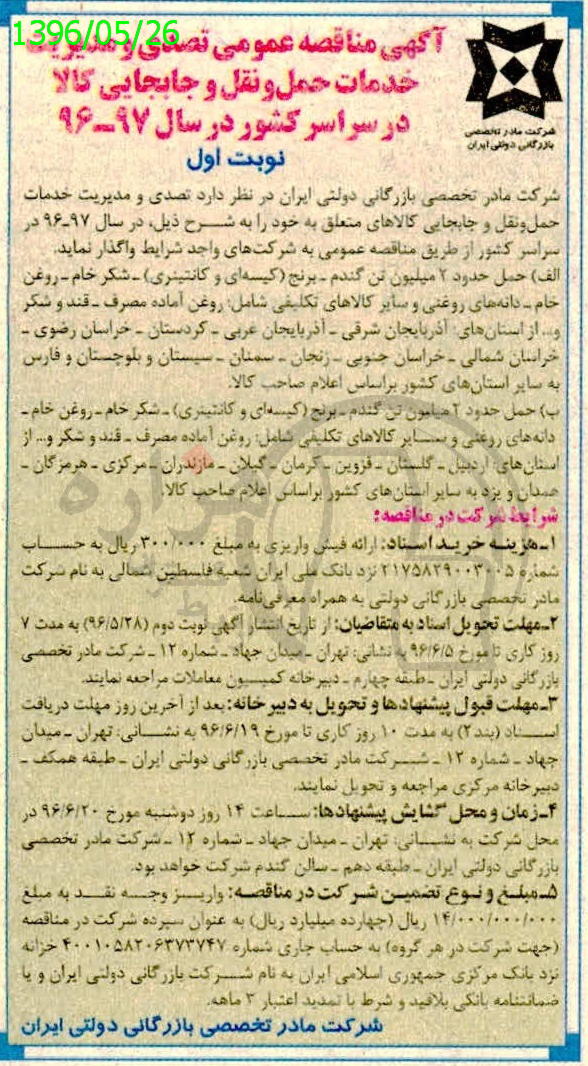 1396/05/26
آگهی مناقصه عمومی تصدی و مدیریت
خدمات حمل‌ونقل و جابجایی کالا
در سراسر کشور در سال ۹۷ـ۹۶
نوبت اول
شرکت مادر تخصصی
بازرگانی دولتی ایران
شرکت مادر تخصصی بازرگانی دولتی ایران در نظر دارد تصدی و مدیریت خدمات
حمل‌ونقل و جابجایی کالاهای متعلق به خود را به شـــرح ذیل، در سال ۹۷ـ۹۶ در
سراسر کشور از طریق مناقصه عمومی به شرکت‌های واجد شرایط واگذار نماید.
الف) حمل حدود ۲ میلیون تن گندم ـ برنج (کیسه‌ای و کانتینری) ـ شکر خام ـ روغن
خام ـ دانه‌های روغنی و سایر کالاهای تکلیفی شامل: روغن آماده مصرف ـ قند و شکر
و... از استان‌های: آذربایجان شرقی ـ آذربایجان غربی ـ کردستان ـ خراسان رضوی ـ
خراسان شمالی ـ خراسان جنوبی ـ زنجان ـ سمنان ـ سیستان و بلوچستان و فارس
به سایر استان‌های کشور براساس اعلام صاحب کالا.
ب) حمل حدود ۲ میلیون تن گندم ـ برنج (کیسه‌ای و کانتینری) ـ شکر خام ـ روغن خام ـ
دانه‌های روغنی و ســـایر کالاهای تکلیفی شامل: روغن آماده مصرف ـ قند و شکر و... از
استان‌های: اردبیل ـ گلستان ـ قزوین ـ کرمان ـ گیلان ـ مازندران ـ مرکزی ـ هرمزگان ـ
همدان و یزد به سایر استان‌های کشور براساس اعلام صاحب کالا.
شرایط شرکت در مناقصه:
۱ـ هزینـه خریـد اسـناد: ارائه فیش واریزی به مبلغ ۳۰۰/۰۰۰ ریال به حســـاب
شماره ۲۱۷۵۸۲۹۰۰۳۰۰۵ نزد بانک ملی ایران شعبه فلسطین شمالی به نام شرکت
مادر تخصصی بازرگانی دولتی به همراه معرفی‌نامه.
۲ـ مهلت تحویل اسناد به متقاضیان: از تاریخ انتشار آگهی نوبت دوم (۹۶/۵/۲۸) به مدت ۷
روز کاری تا مورخ ۹۶/۶/۵ به نشانی: تهران ـ میدان جهاد ـ شماره ۱۲ ـ شرکت مادر تخصصی
بازرگانی دولتی ایران ـ طبقه چهارم ـ دبیرخانه کمیسیون معاملات مراجعه نمایند.
۳ـ مهلت قبول پیشنهادها و تحویل به دبیرخانه: بعد از آخرین روز مهلت دریافت
اســـناد (بند ۲) به مدت ۱۰ روز کاری تا مورخ ۹۶/۶/۱۹ به نشـــانی: تهران ـ میدان
جهاد ـ شماره ۱۲ ـ شـــرکت مادر تخصصی بازرگانی دولتی ایران ـ طبقه همکف ـ
دبیرخانه مرکزی مراجعه و تحویل نمایند.
۴ـ زمان و محل گشایش پیشنهادها: ســـاعت ۱۴ روز دوشنبه مورخ ۹۶/۶/۲۰ در
محل شرکت به نشـــانی: تهران ـ میدان جهاد ـ شماره ۱۲ ـ شرکت مادر تخصصی
بازرگانی دولتی ایران ـ طبقه دهم ـ سالن گندم شرکت خواهد بود.
۵ـ مبلـغ و نـوع تضمیـن شـرکت در مناقصـه: واریـــز وجـــه نقـــد به مبلغ
۱۴/۰۰۰/۰۰۰/۰۰۰ ریال (چهارده میلیارد ریال) به عنوان سپرده شرکت در مناقصه
(جهت شرکت در هر گروه) به حساب جاری شماره ۴۰۰۱۰۵۸۲۰۶۳۷۳۷۴۷ خزانه
نزد بانک مرکزی جمهوری اسلامی ایران به نام شـــرکت بازرگانی دولتی ایران و یا
ضمانتنامه بانکی بلاقید و شرط با تمدید اعتبار ۳ ماهه.
شرکت مادر تخصصی بازرگانی دولتی ایران